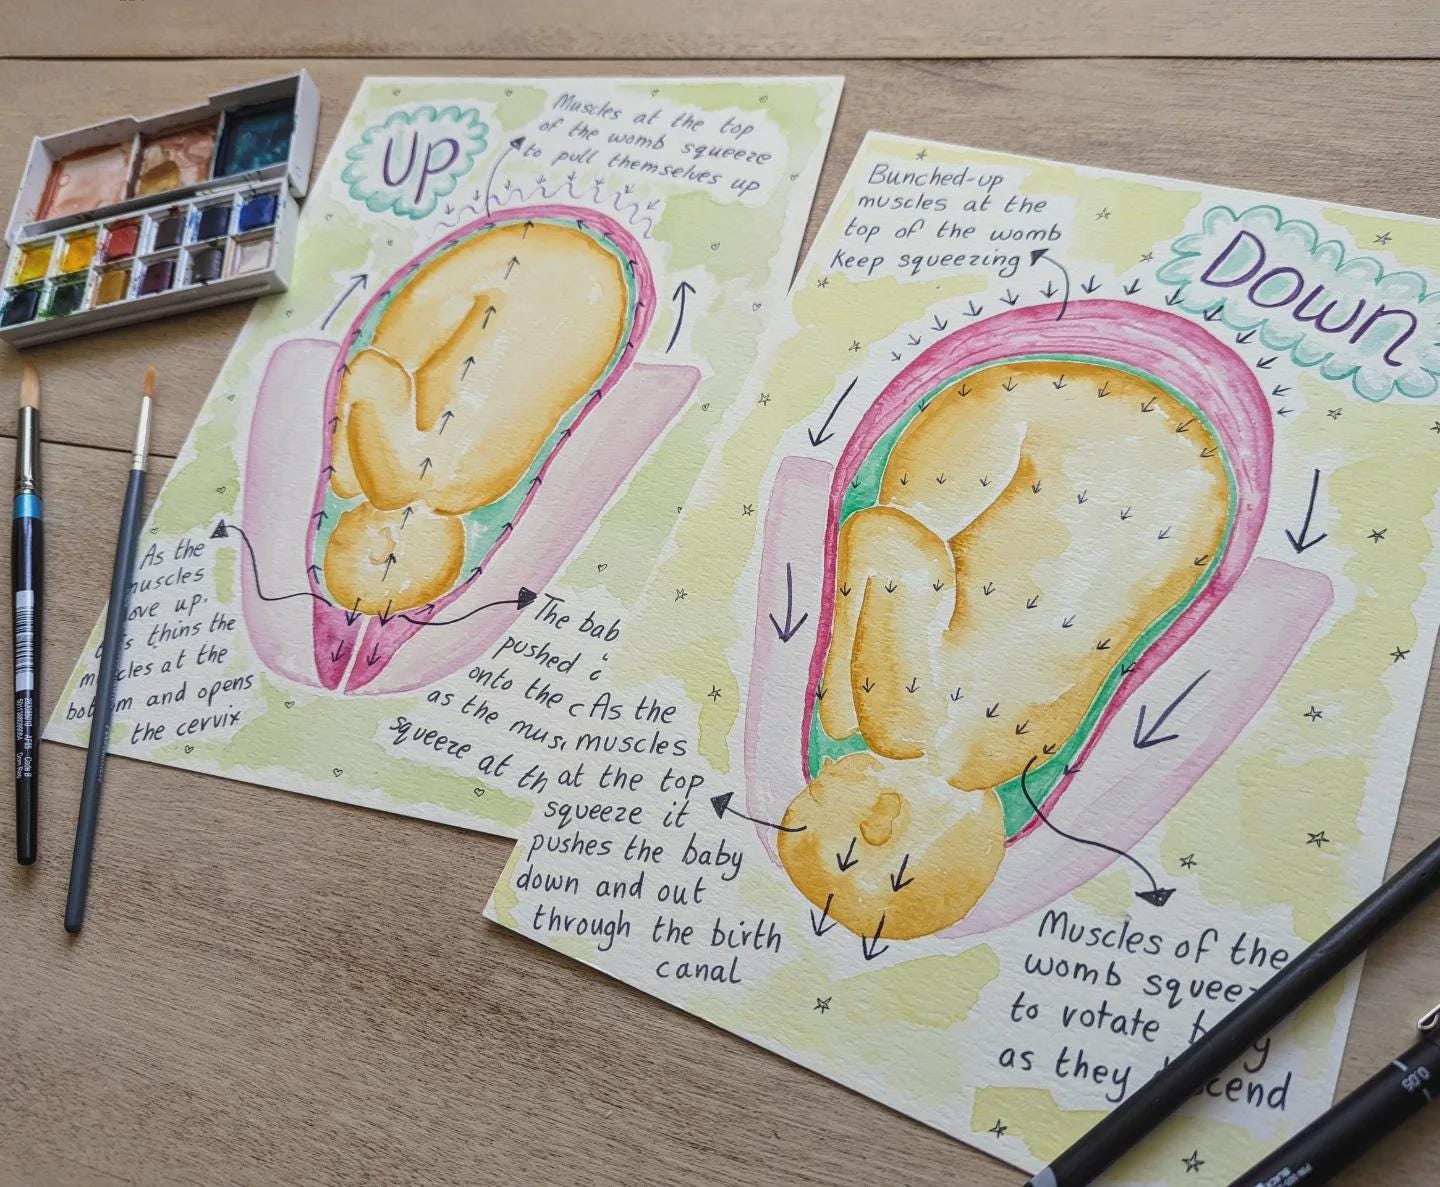 UP
Muscles at the top
of the womb squeeze
to pull themselves up
As the
muscles
ove up.
thins the
cles at the
bot om and opens
the cervix
The bab
pushed
onto the c
as the mus
squeeze at th
Down
Bunched-up
muscles at the
top of the womb
keep squeezing
As the
muscles
at the top
squeeze it
pushes the baby
down and out
through the birth
canal
Muscles of the
womb squee
to rotate b y
as they scend
0.05